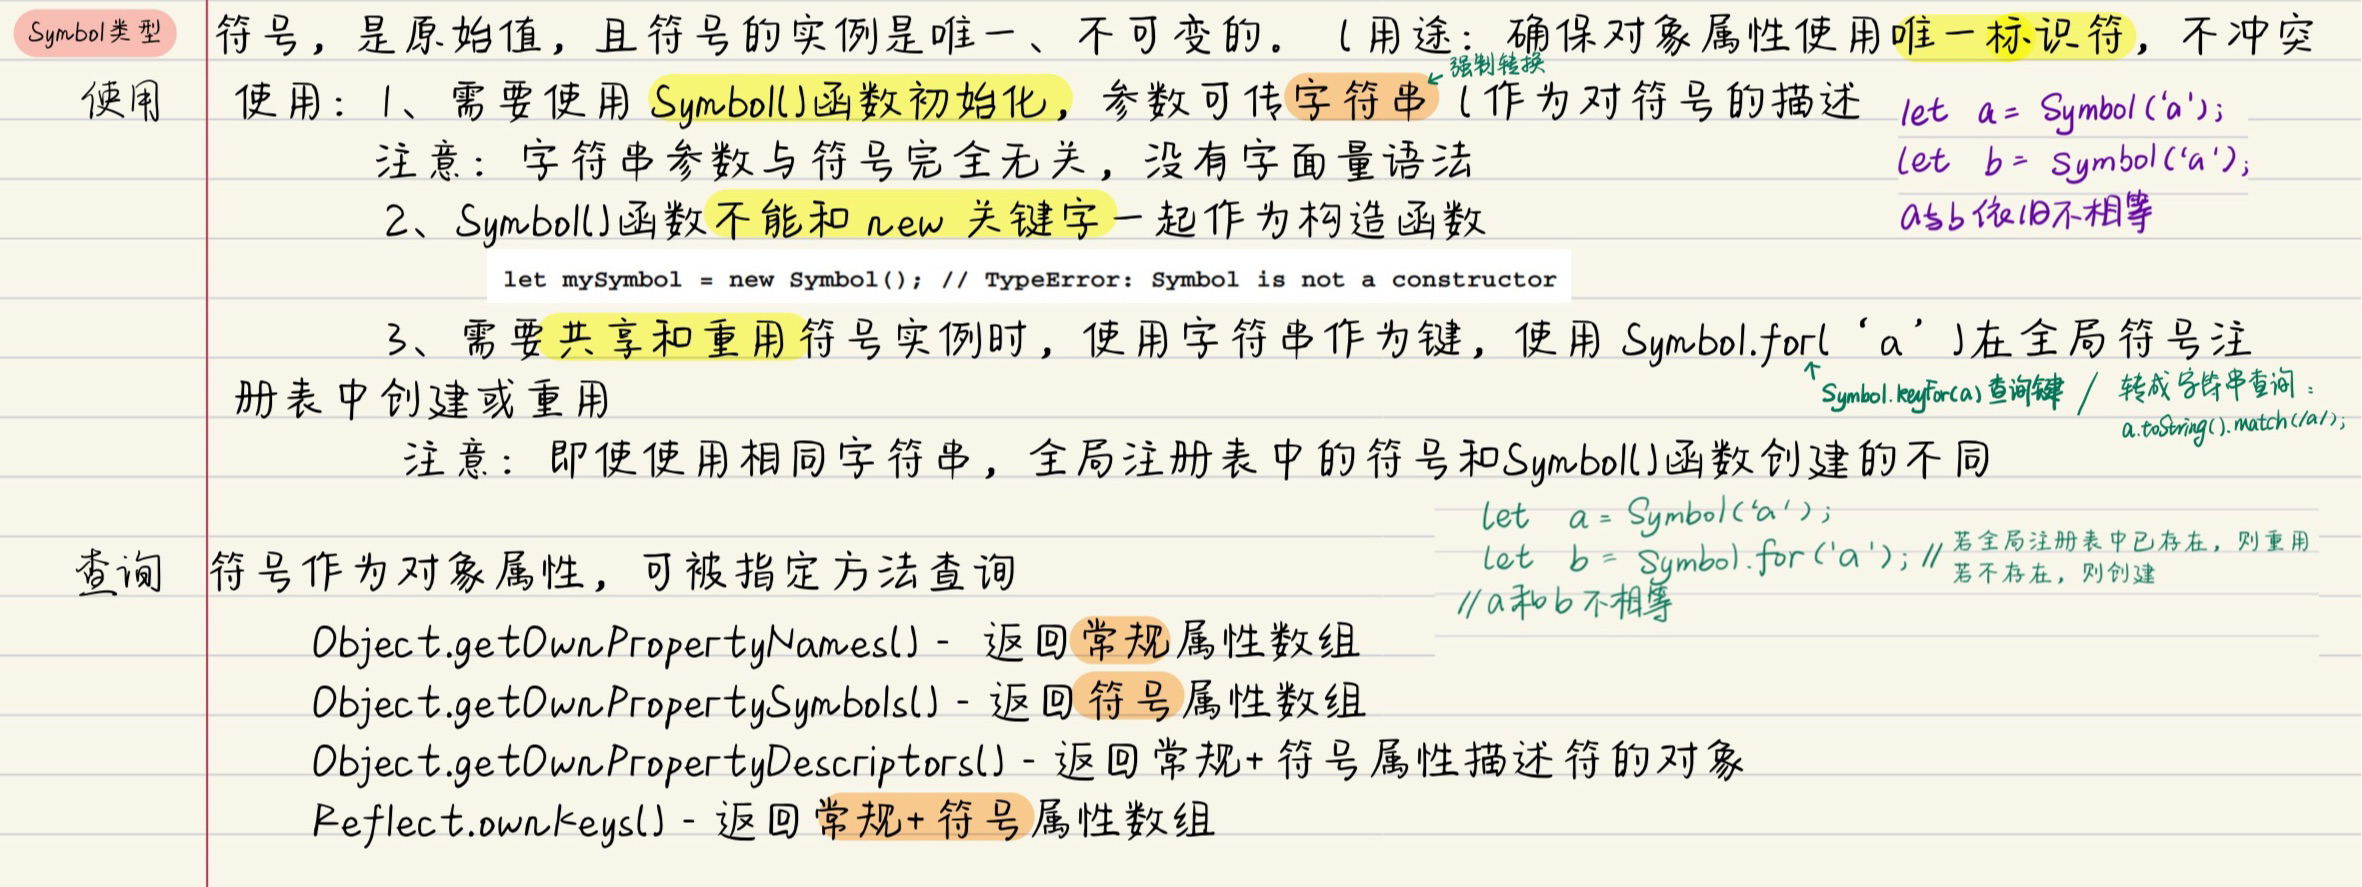 Symbol类型
符号，是原始值，且符号的实例是唯一、不可变的。（用途：确保对象属性使用唯一标识符，不冲突
强制转换
使用
使用：1、需要使用 Symbol()函数初始化，参数可传字符串（作为对符号的描述
let a = Symbol('a');
let b = Symbol('a');
a与b依旧不相等
注意：字符串参数与符号完全无关，没有字面量语法
2、Symbol()函数不能和 new 关键字一起作为构造函数
let mySymbol = new Symbol(); // TypeError: Symbol is not a constructor
3、需要共享和重用符号实例时，使用字符串作为键，使用 Symbol.for('a')在全局符号注
册表中创建或重用
↑ Symbol.keyFor(a) 查询键 / 转成字符串查询：
a.toString().match(/a/);
注意：即使使用相同字符串，全局注册表中的符号和Symbol()函数创建的不同
let a = Symbol('a');
let b = Symbol.for('a'); // 若全局注册表中已存在，则重用
若不存在，则创建
// a和b不相等
查询
符号作为对象属性，可被指定方法查询
Object.getOwnPropertyNames() - 返回常规属性数组
Object.getOwnPropertySymbols() - 返回符号属性数组
Object.getOwnPropertyDescriptors() - 返回常规+符号属性描述符的对象
Reflect.ownkeys() - 返回常规+符号属性数组